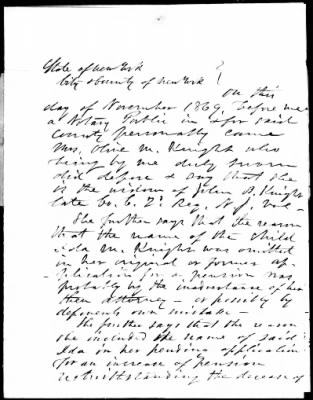 State of New York
City & County of New York } On this
day of November 1869, Before me
a Notary Public in & for said
County personally came
Mrs. Olive M. Knight who
being by me duly sworn
did depose & say that she
is the widow of John B. Knight
late Co. C. 2d Reg. N.J. Vols -
She further says that the reason
that the name of the child
Ida M. Knight was omitted
in her original or former ap-
plication for a pension was
probably by the inadvertance of her
then attorney - or possibly by
deponents own mistake -
She further says that the reason
she included the name of said
Ida in her pending application
for an increase of pension
notwithstanding the decease of